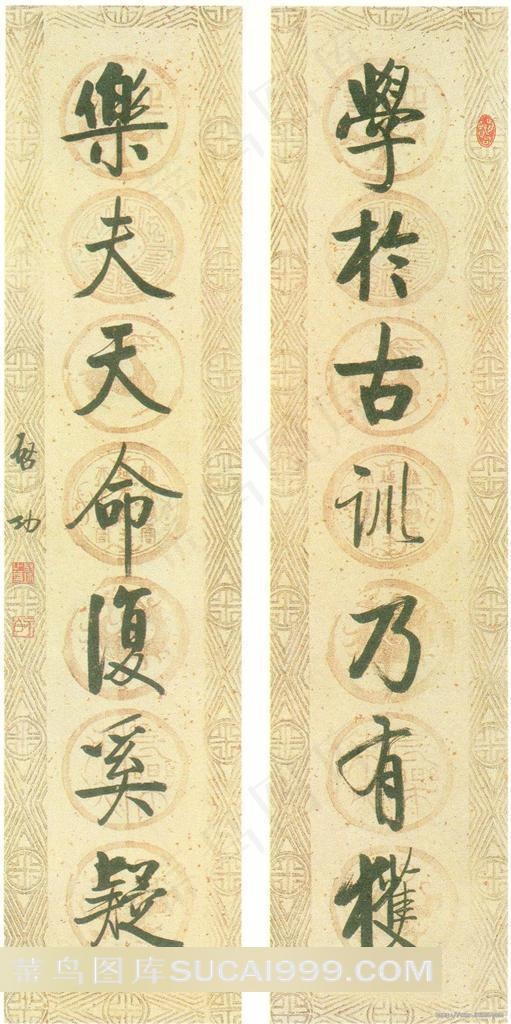 學於古訓乃有獲
樂夫天命復奚疑
啓功
菜鸟图库SUCAI999.COM